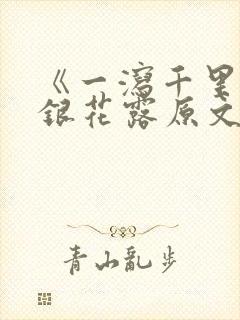 《一泻千里
银花露原文
青山乱步